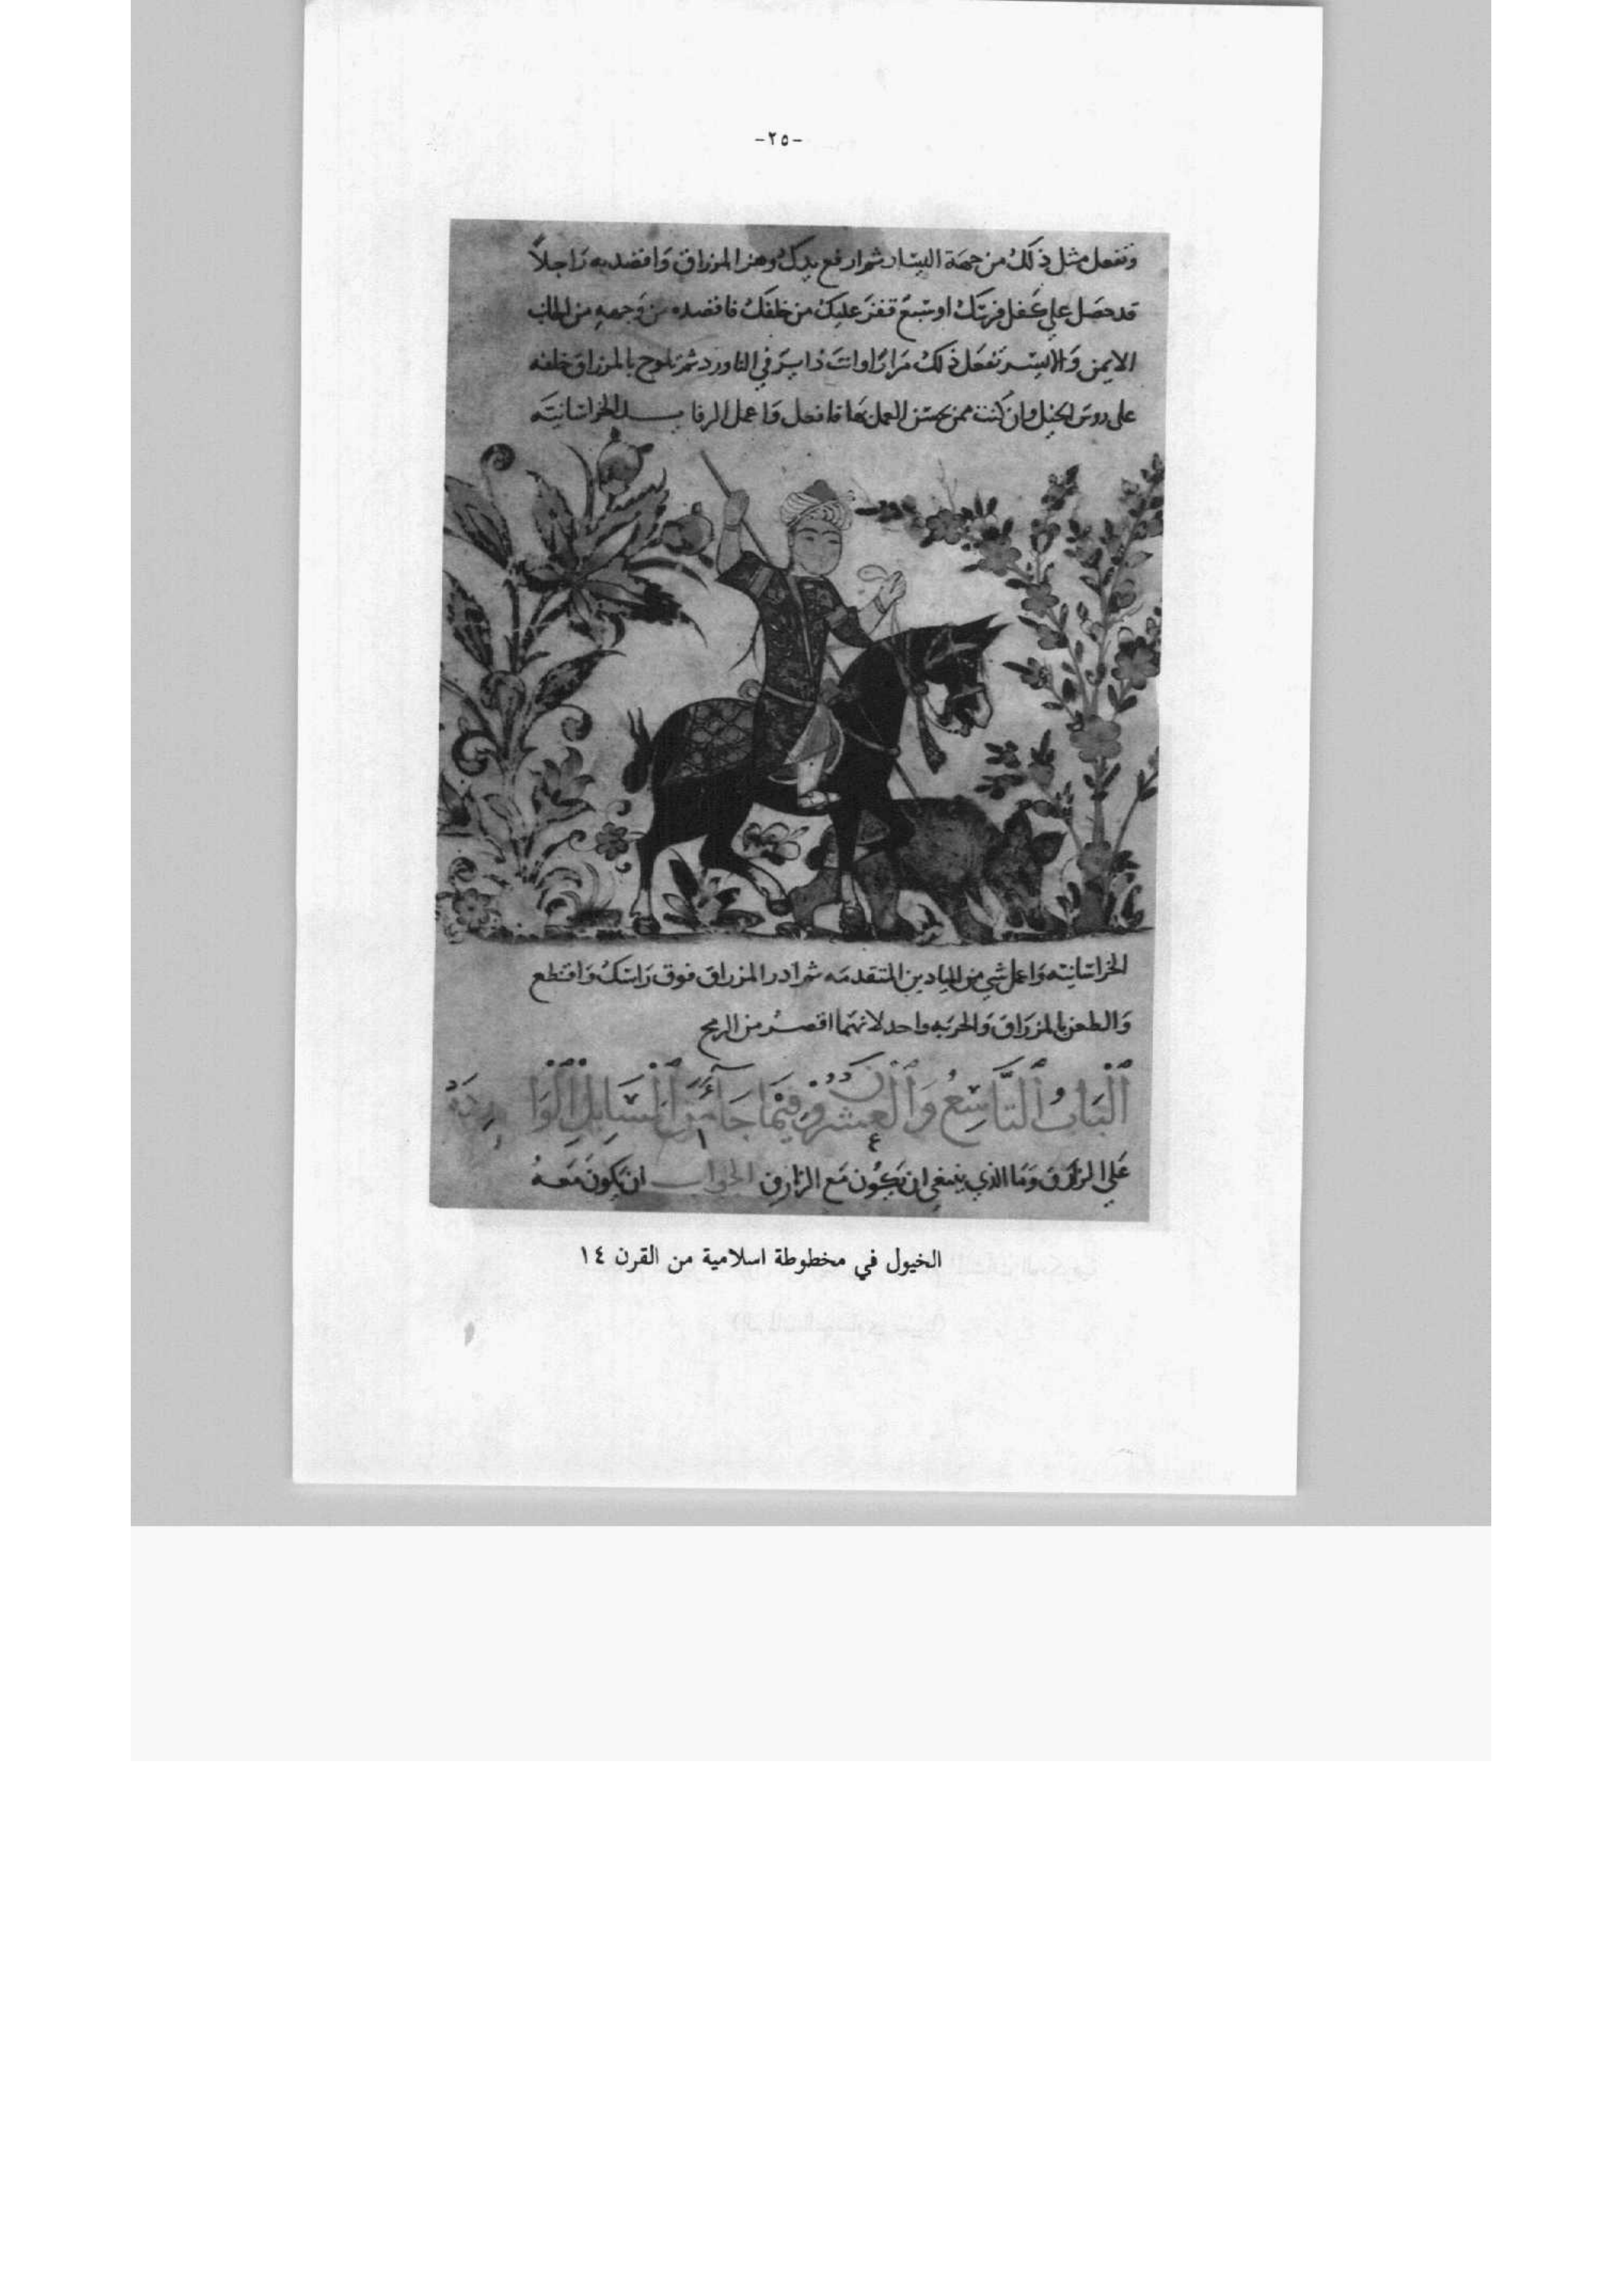 -٢٥-
وتفعل مثل ذلك من جهة اليسار ثم ارفع يدك وهز المزراق واقصد به راجلاً
قد حصل علي كفل فرسك او سبع قفز عليك من خلفك فاقصده من وجهه من الجانب
الايمن والايسر تفعل ذلك مرارا وانت داير في الناورد ثم تلوح بالمزراق خلفه
على روس الخيل وان كنت ممن يحسن العمل بها فافعل واعمل الخراسانيه
الخراسانيه واعمل شي من الميادين المتقدمه ثم ادر المزراق فوق راسك واقطع
والطعن بالمزراق والحربه واحد لانهما اقصر من الرمح
الباب التاسع والعشرون فيما جاء من المسايل الواردة
علي الزارق وما الذي ينبغي ان يكون مع الزارق الجواب ان يكون معه
الخيول في مخطوطة اسلامية من القرن ١٤